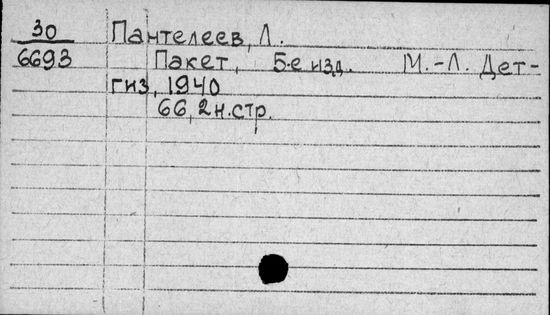 30 Пантелеев, Л.
6693 Пакет, 5-е изд. М.-Л. Дет-
гиз, 1940
66, 2 н.стр.